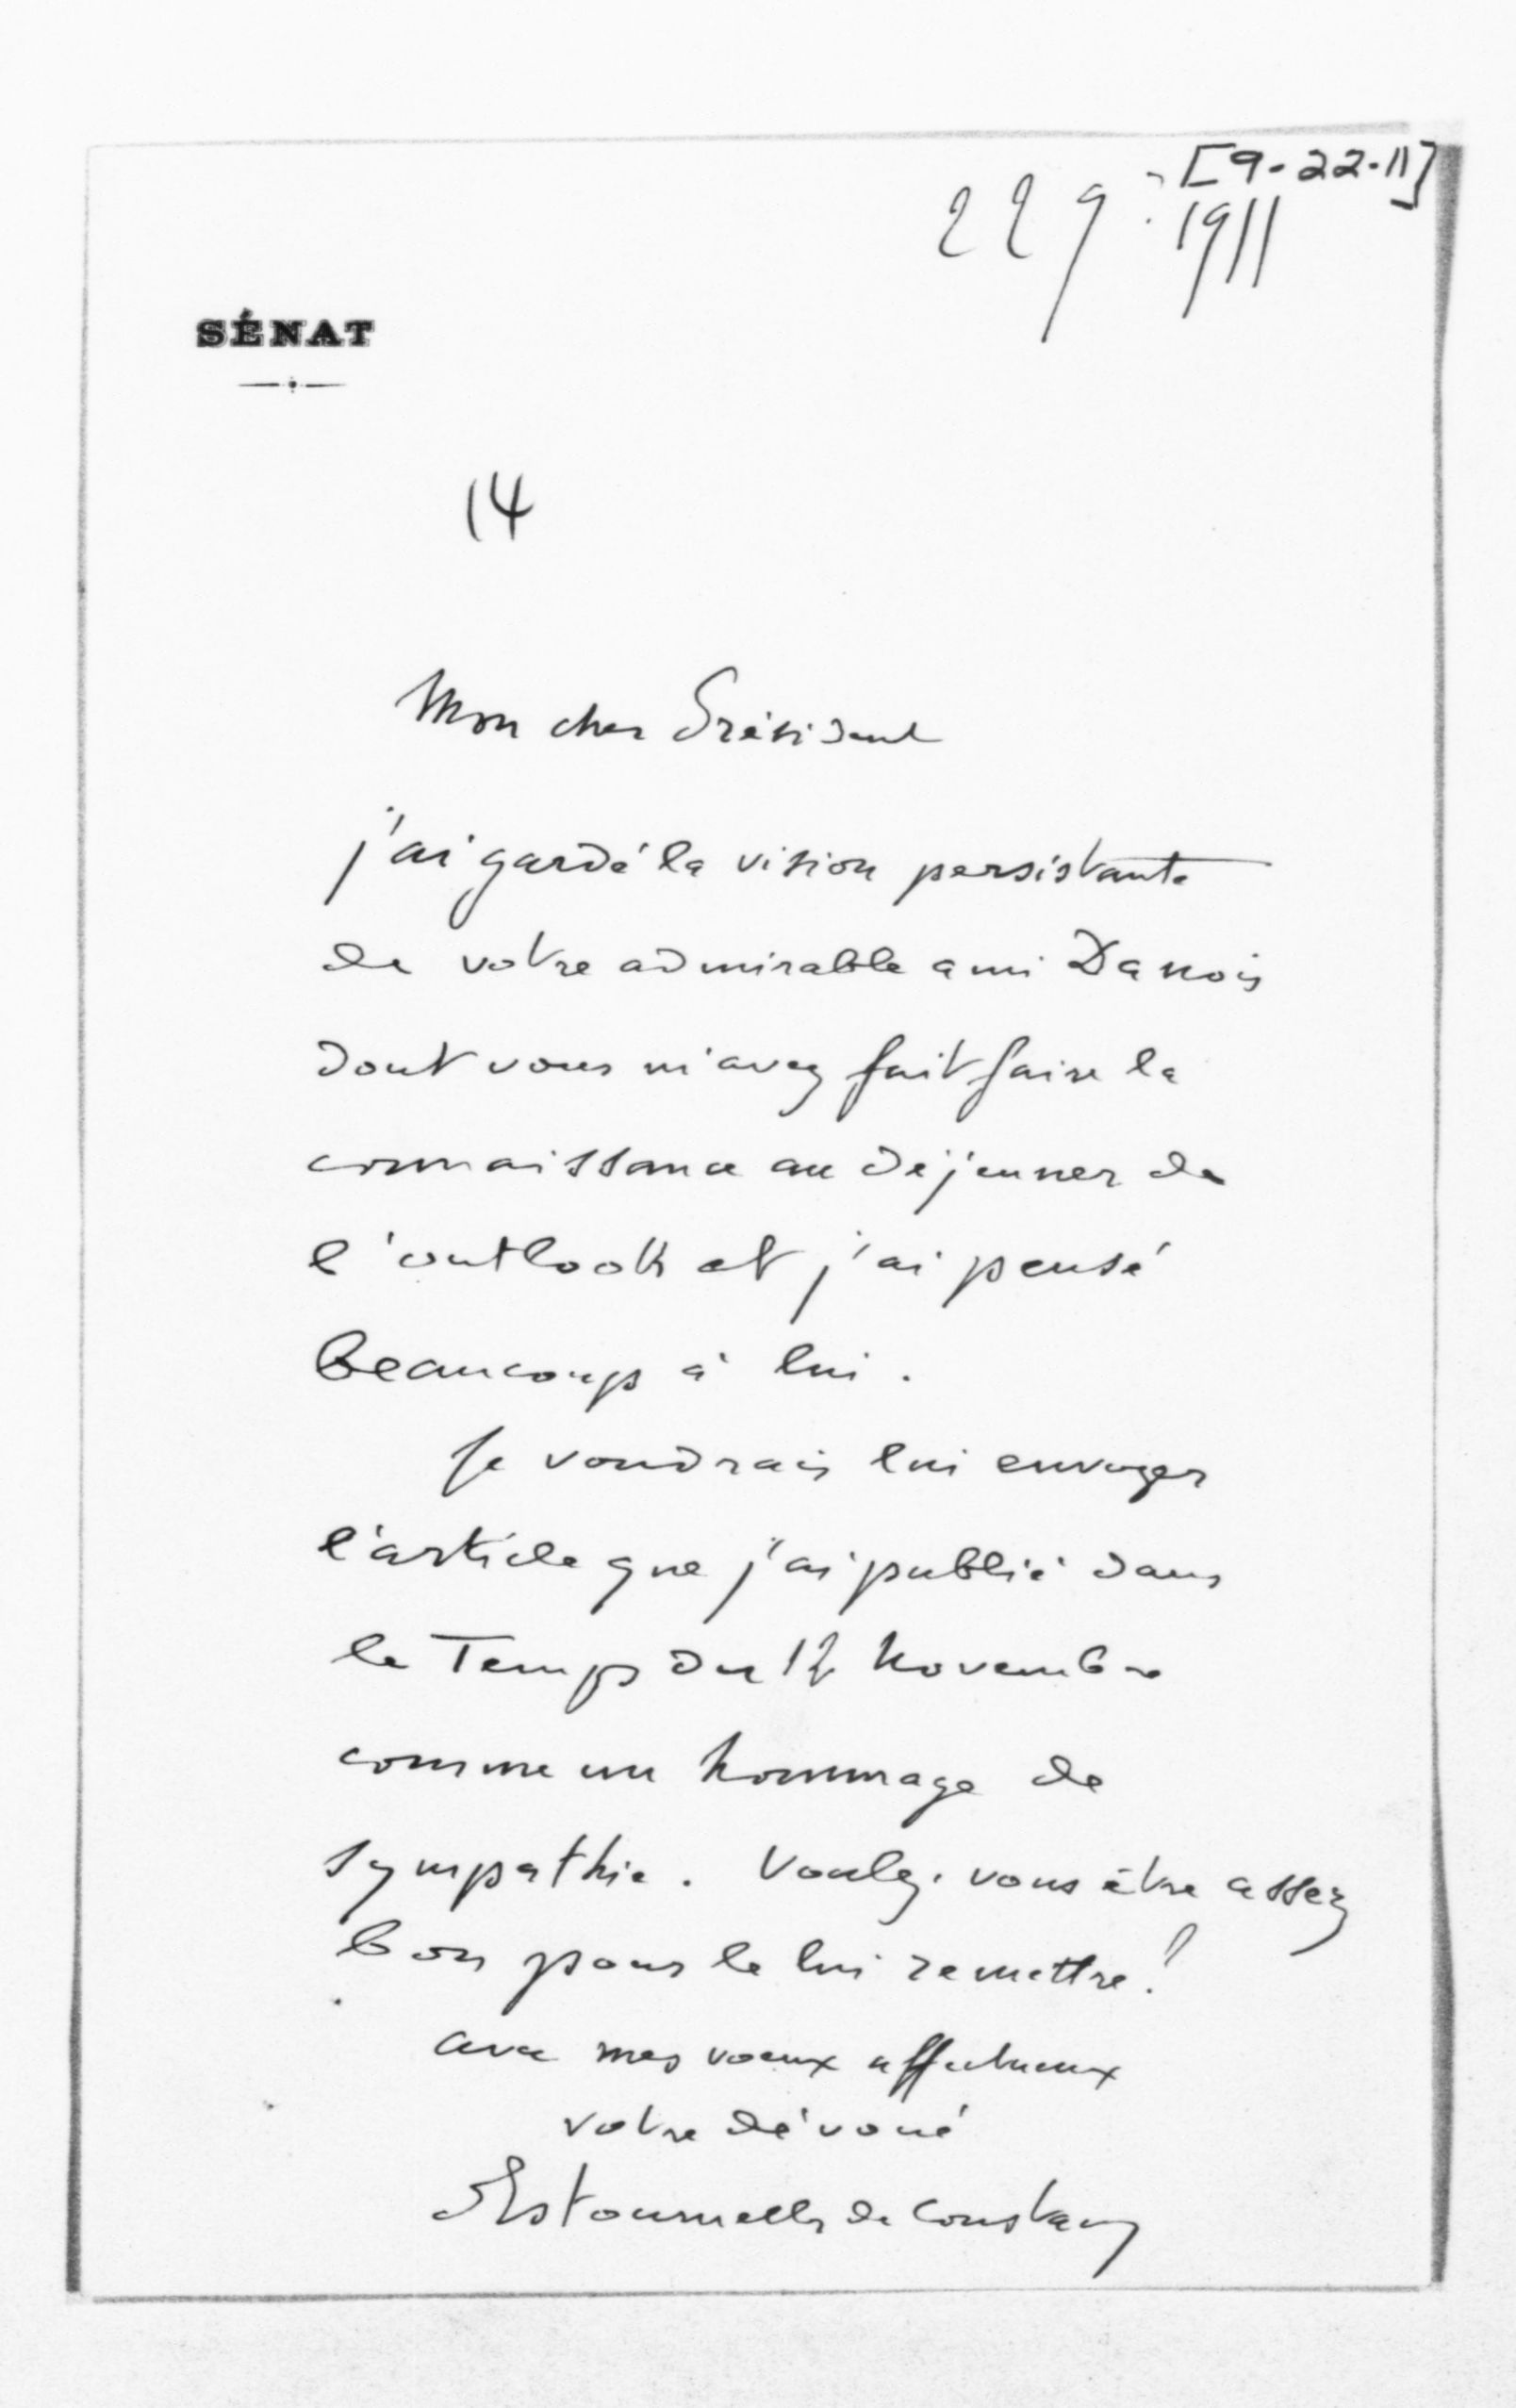 [9-22-11]
22 9 1911
SÉNAT
14
Mon cher Président
j'ai gardé la vision persistante
de votre admirable ami Danois
dont vous m'avez fait faire la
connaissance au déjeuner de
l'outlook et j'ai pensé
beaucoup à lui.
Je voudrais lui envoyer
l'article que j'ai publié dans
le Temps du 12 Novembre
comme un hommage de
sympathie. Voulez-vous être assez
bon pour le lui remettre?
avec mes voeux affectueux
votre dévoué
d'Estournelles de Constant